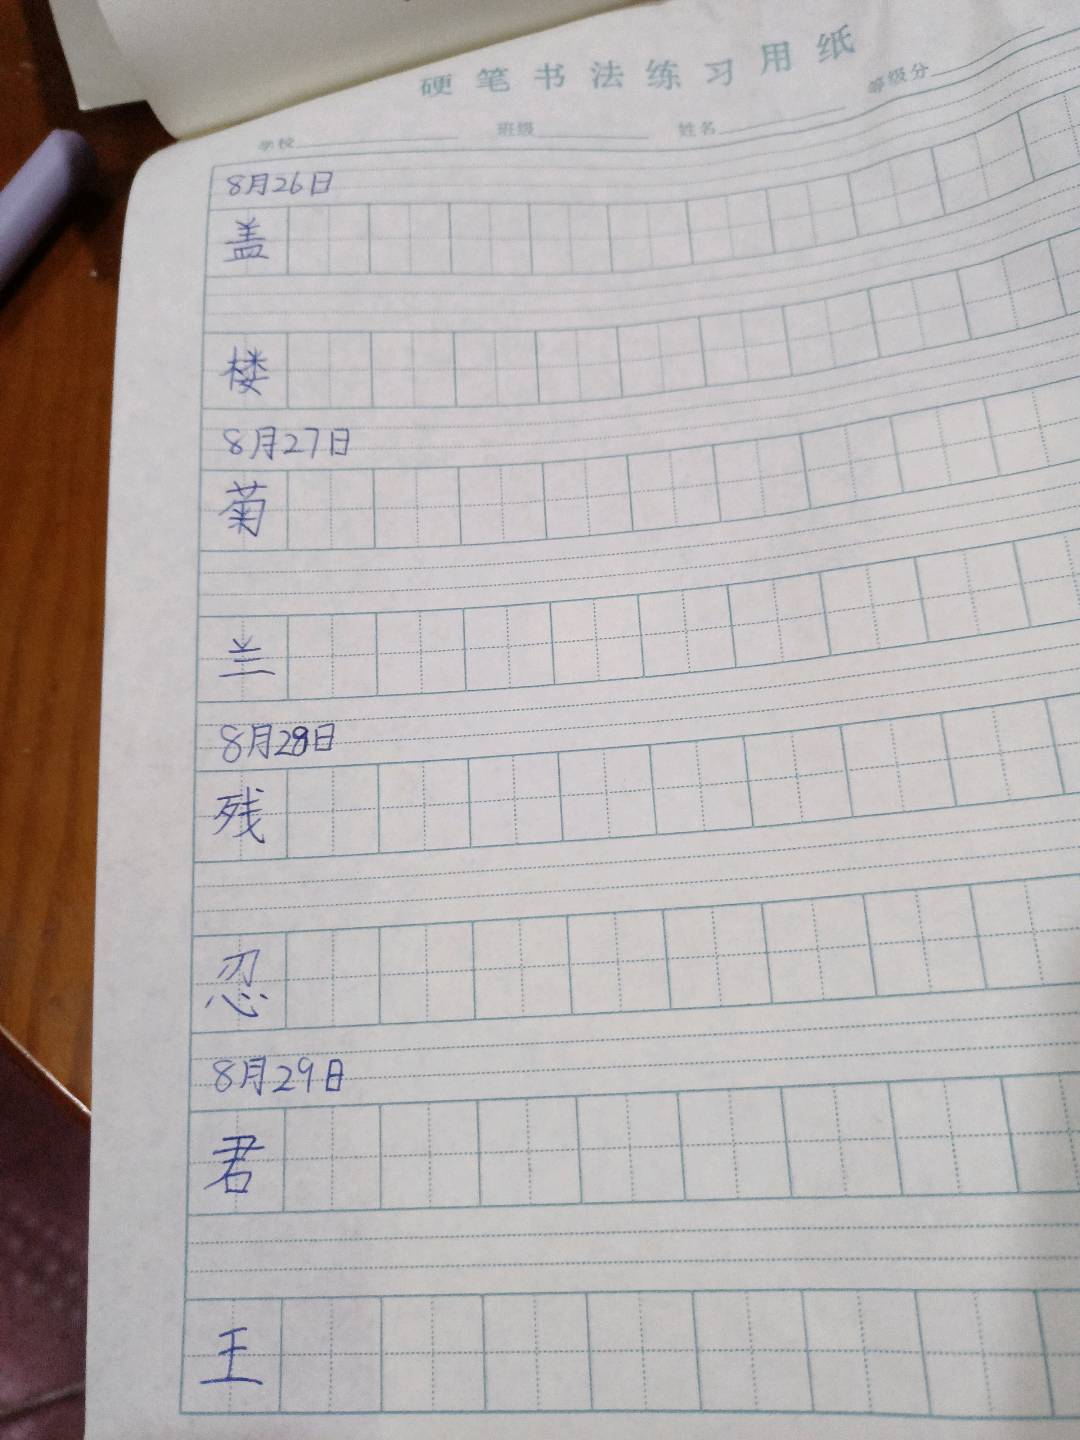 硬笔书法练习用纸
学校 班级 姓名 等级分
8月26日
盖
楼
8月27日
菊
兰
8月28日
残
忍
8月29日
君
王